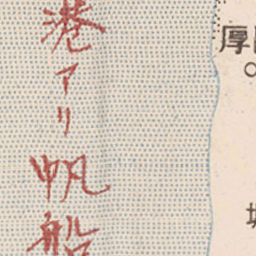 厚
港アリ帆船